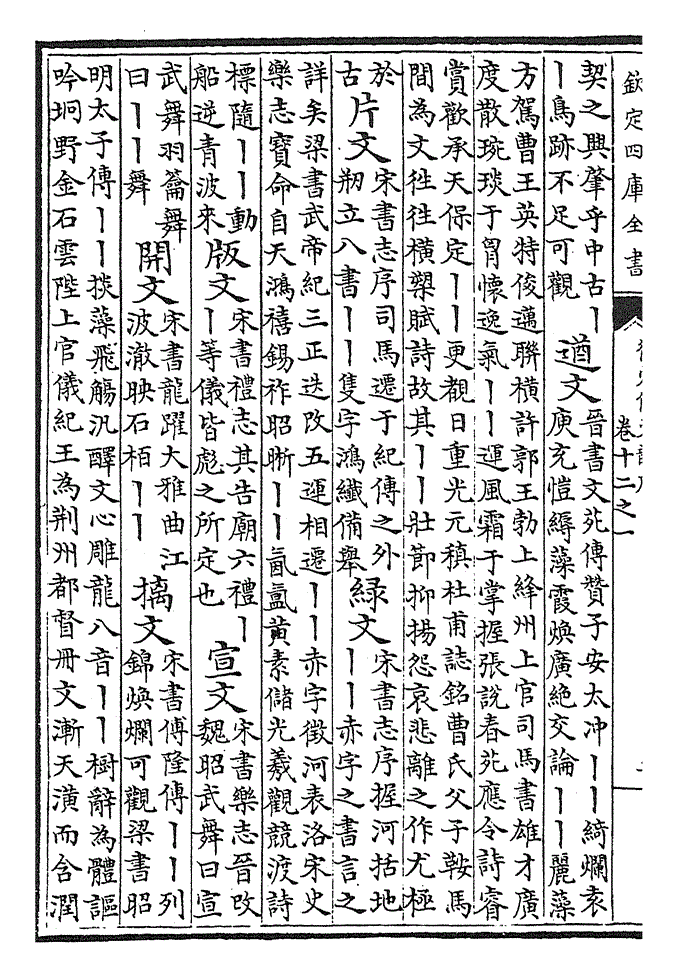 欽定四庫全書
卷十二之一
契之興肇乎中古丨
丨鳥跡不足可觀
遒文
晉書文苑傳贊子安太冲丨丨綺爛袁
庾充愷縟藻霞煥廣絶交論丨丨麗藻
方駕曹王英特俊邁聯横許郭王勃上絳州上官司馬書雄才廣
度散琬琰于胷懷逸氣丨丨運風霜于掌握張說春苑應令詩睿
賞歡承天保定丨丨更觀日重光元稹杜甫誌銘曹氏父子鞍馬
間為文徃徃横槊賦詩故其丨丨壯節抑揚怨哀悲離之作尤極
於
古
片文
宋書志序司馬遷于紀傳之外
剏立八書丨丨隻字鴻纖備舉
緑文
宋書志序握河括地
丨丨赤字之書言之
詳矣梁書武帝紀三正迭改五運相遷丨丨赤字徵河表洛宋史
樂志寶命自天鴻禧錫祚昭晣丨丨氤氲黄素儲光羲觀競渡詩
標隨丨丨動
船逆青波來
版文
宋書禮志其告廟六禮丨
丨等儀皆彪之所定也
宣文
宋書樂志晉改
魏昭武舞曰宣
武舞羽籥舞
曰丨丨舞
開文
宋書龍躍大雅曲江
波澈映石栢丨丨
摛文
宋書傅隆傳丨丨列
錦煥爛可觀梁書昭
明太子傳丨丨掞藻飛觴汎醳文心雕龍八音丨丨樹辭為體謳
吟坰野金石雲陛上官儀紀王為荆州都督冊文漸天潢而含潤